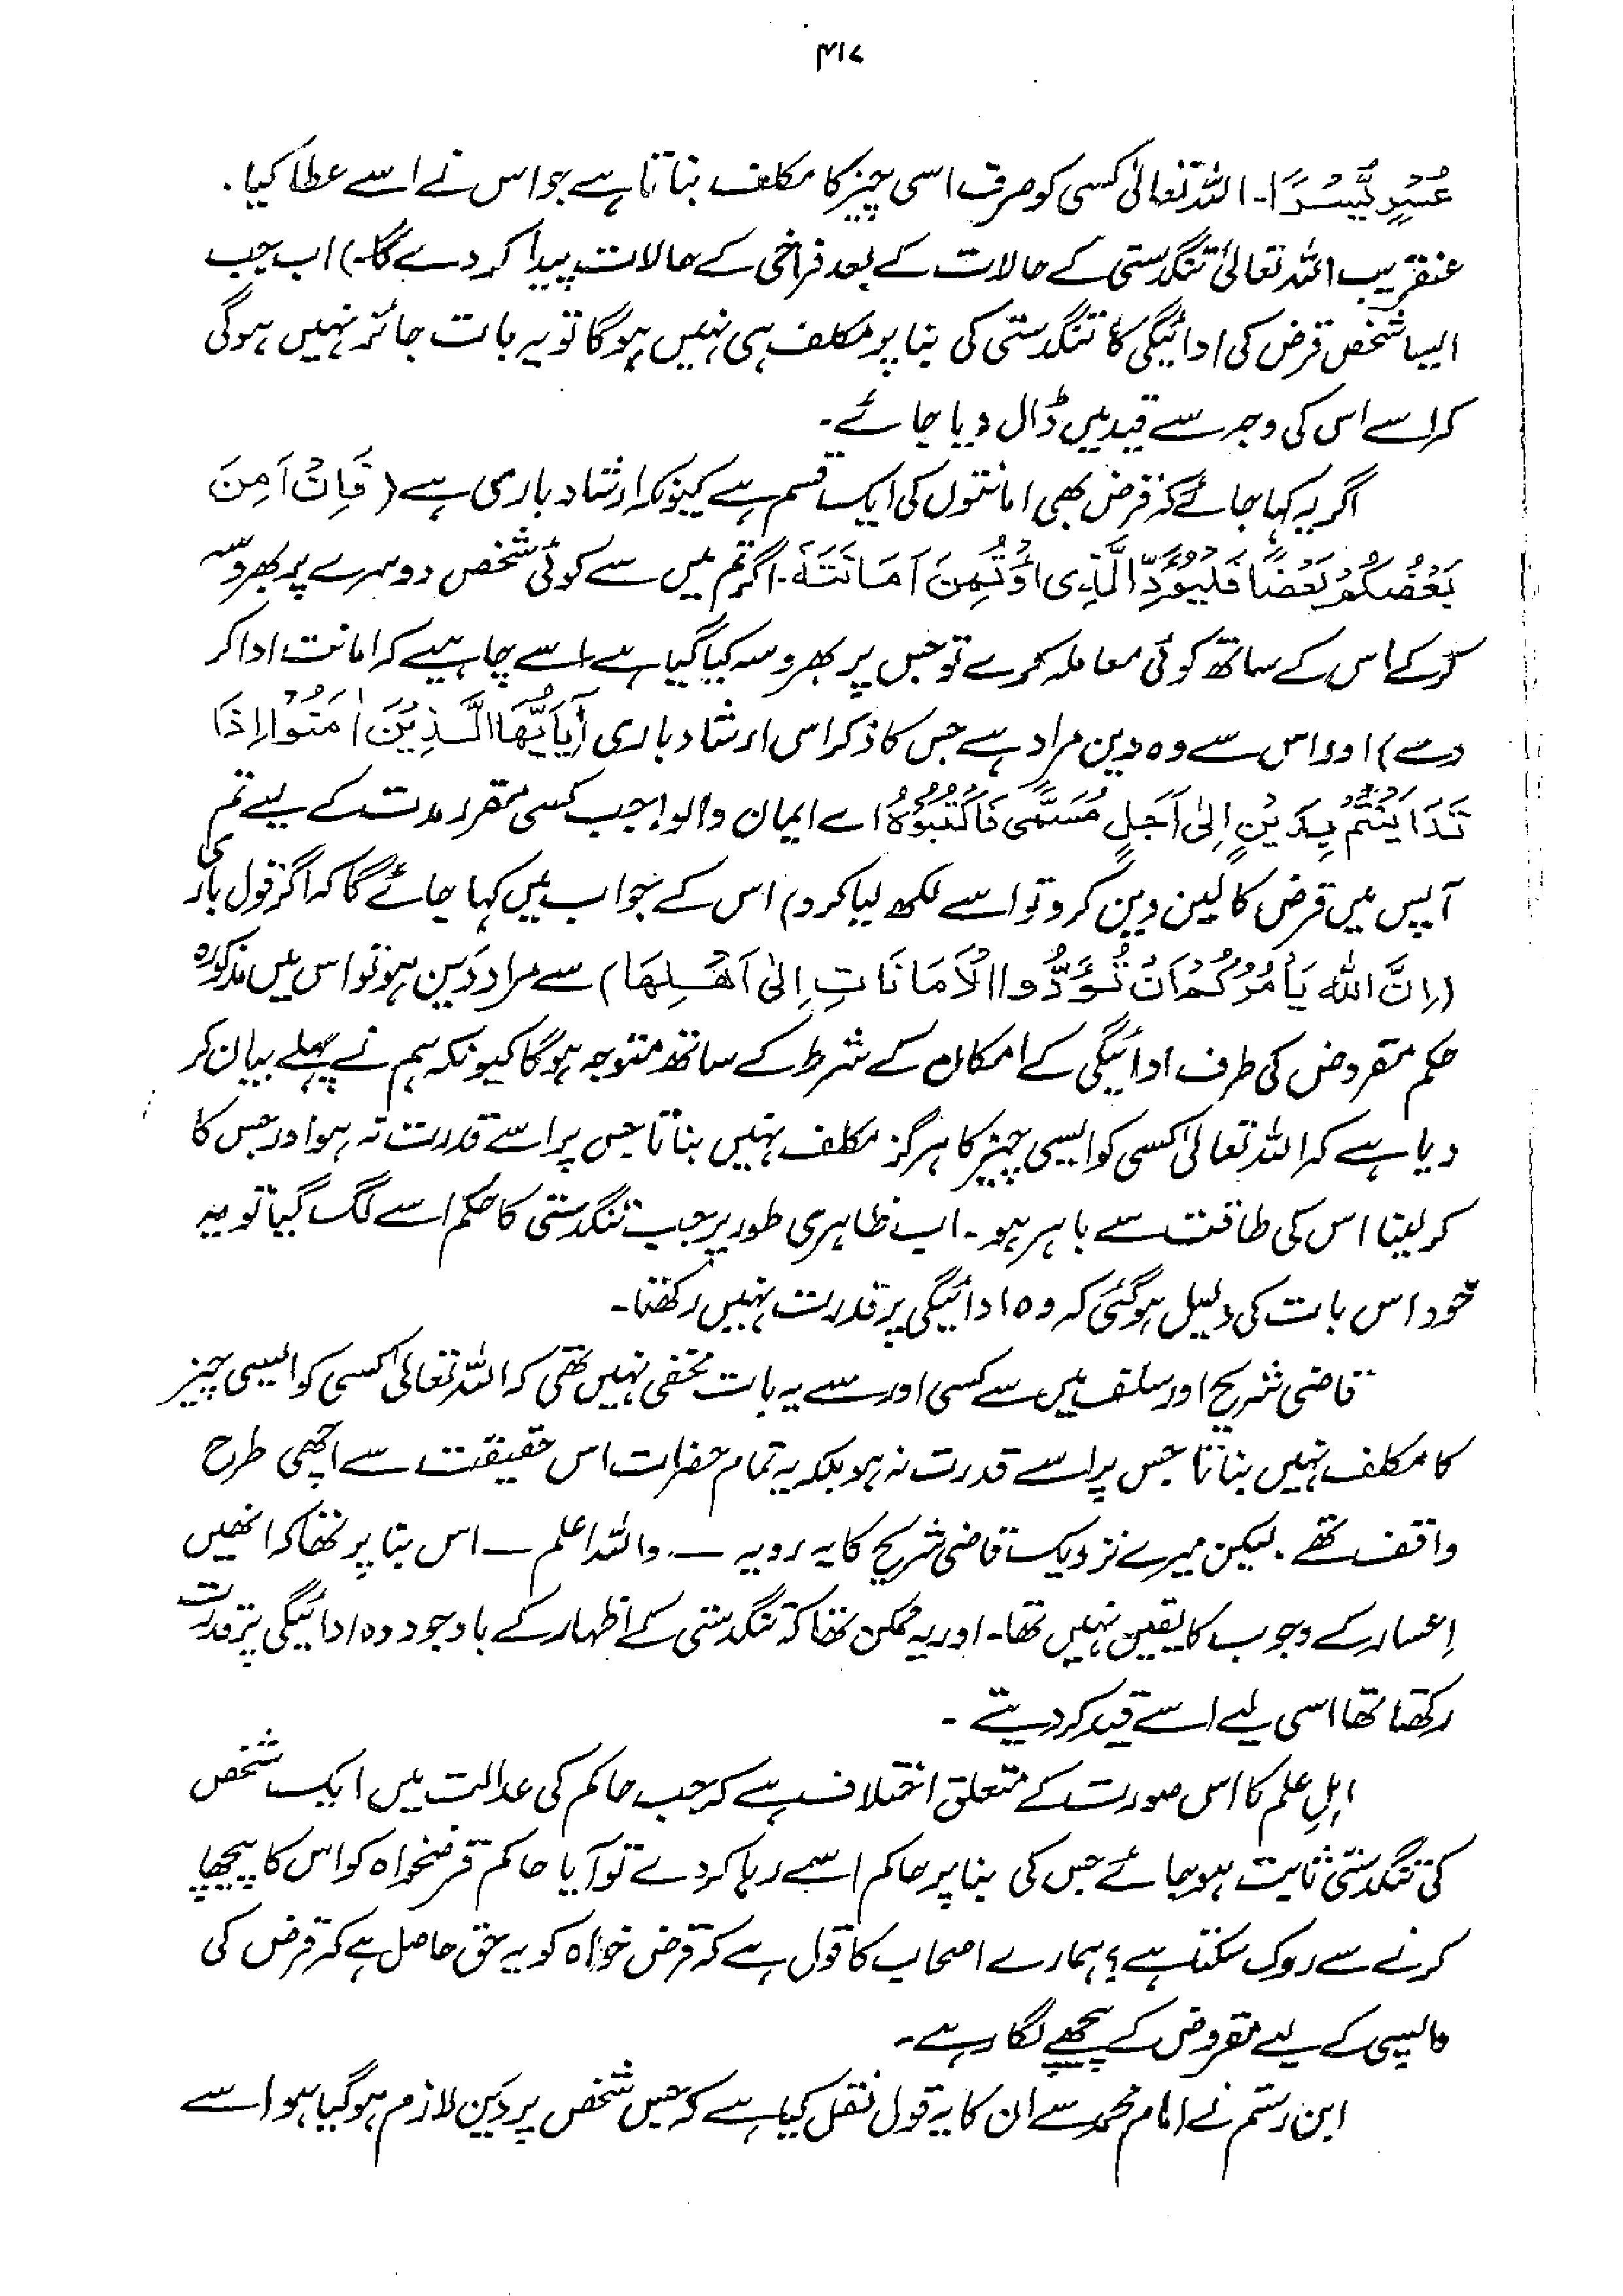 ۴۱۷
عُسْرٍ یُّسْرًا۔ اللہ تعالیٰ کسی کو صرف اسی چیز کا مکلف بناتا ہے جو اس نے اسے عطا کیا۔
عنقریب اللہ تعالیٰ تنگدستی کے حالات کے بعد فراخی کے حالات پیدا کر دے گا۔) اب جب
ایسا شخص قرض کی ادائیگی کا تنگدستی کی بنا پر مکلف ہی نہیں ہوگا تو یہ بات جائز نہیں ہوگی
کہ اسے اس کی وجہ سے قید میں ڈال دیا جائے۔
اگر یہ کہا جائے کہ قرض بھی امانتوں کی ایک قسم ہے کیونکہ ارشاد باری ہے (فَاِنْ اَمِنَ
بَعْضُکُمْ بَعْضًا فَلْیُؤَدِّ الَّذِی اؤْتُمِنَ اَمَانَتَہٗ۔ اگر تم میں سے کوئی شخص دوسرے پر بھروسہ
کرکے اس کے ساتھ کوئی معاملہ کرے تو جس پر بھروسہ کیا گیا ہے اسے چاہیے کہ امانت ادا کر
دے) اور اس سے وہ دین مراد ہے جس کا ذکر اس ارشاد باری (یٰاَیُّھَا الَّذِیْنَ اٰمَنُوْا اِذَا
تَدَایَنْتُمْ بِدَیْنٍ اِلٰی اَجَلٍ مُسَمًّی فَاکْتُبُوْہُ اے ایمان والو! جب کسی مقرر مدت کے لیے تم
آپس میں قرض کا لین دین کرو تو اسے لکھ لیا کرو) اس کے جواب میں کہا جائے گا کہ اگر قول باری
(اِنَّ اللہَ یَأْمُرُکُمْ اَنْ تُؤَدُّوا الْاَمَانَاتِ اِلٰی اَھْلِھَا) سے مراد دَین ہو تو اس میں مذکورہ
حکم مقروض کی طرف ادائیگی کے امکان کے شرط کے ساتھ متوجہ ہوگا کیونکہ ہم نے پہلے بیان کر
دیا ہے کہ اللہ تعالیٰ کسی کو ایسی چیز کا ہرگز مکلف نہیں بناتا جس پر اسے قدرت نہ ہو اور جس کا
کر لینا اس کی طاقت سے باہر ہو۔ اب ظاہری طور پر جب تنگدستی کا حکم اسے لگ گیا تو یہ
خود اس بات کی دلیل ہوگئی کہ وہ ادائیگی پر قدرت نہیں رکھتا۔
قاضی شریح اور سلف میں سے کسی اور سے یہ بات مخفی نہیں تھی کہ اللہ تعالیٰ کسی کو ایسی چیز
کا مکلف نہیں بناتا جس پر اسے قدرت نہ ہو بلکہ یہ تمام حضرات اس حقیقت سے اچھی طرح
واقف تھے۔ لیکن میرے نزدیک قاضی شریح کا یہ رویہ — واللہ اعلم — اس بنا پر تھا کہ انھیں
اِعسار کے وجوب کا یقین نہیں تھا۔ اور یہ ممکن تھا کہ تنگدستی کے اظہار کے باوجود وہ ادائیگی پر قدرت
رکھتا تھا اسی لیے اسے قید کر دیتے۔
اہلِ علم کا اس صورت کے متعلق اختلاف ہے کہ جب حاکم کی عدالت میں ایک شخص
کی تنگدستی ثابت ہو جائے جس کی بنا پر حاکم اسے رہا کر دے تو آیا حاکم قرضخواہ کو اس کا پیچھا
کرنے سے روک سکتا ہے؟ ہمارے اصحاب کا قول ہے کہ قرض خواہ کو یہ حق حاصل ہے کہ قرض کی
واپسی کے لیے مقروض کے پیچھے لگا رہے۔
ابن رستم نے امام محمد سے ان کا یہ قول نقل کیا ہے کہ جس شخص پر دَین لازم ہو گیا ہو اسے